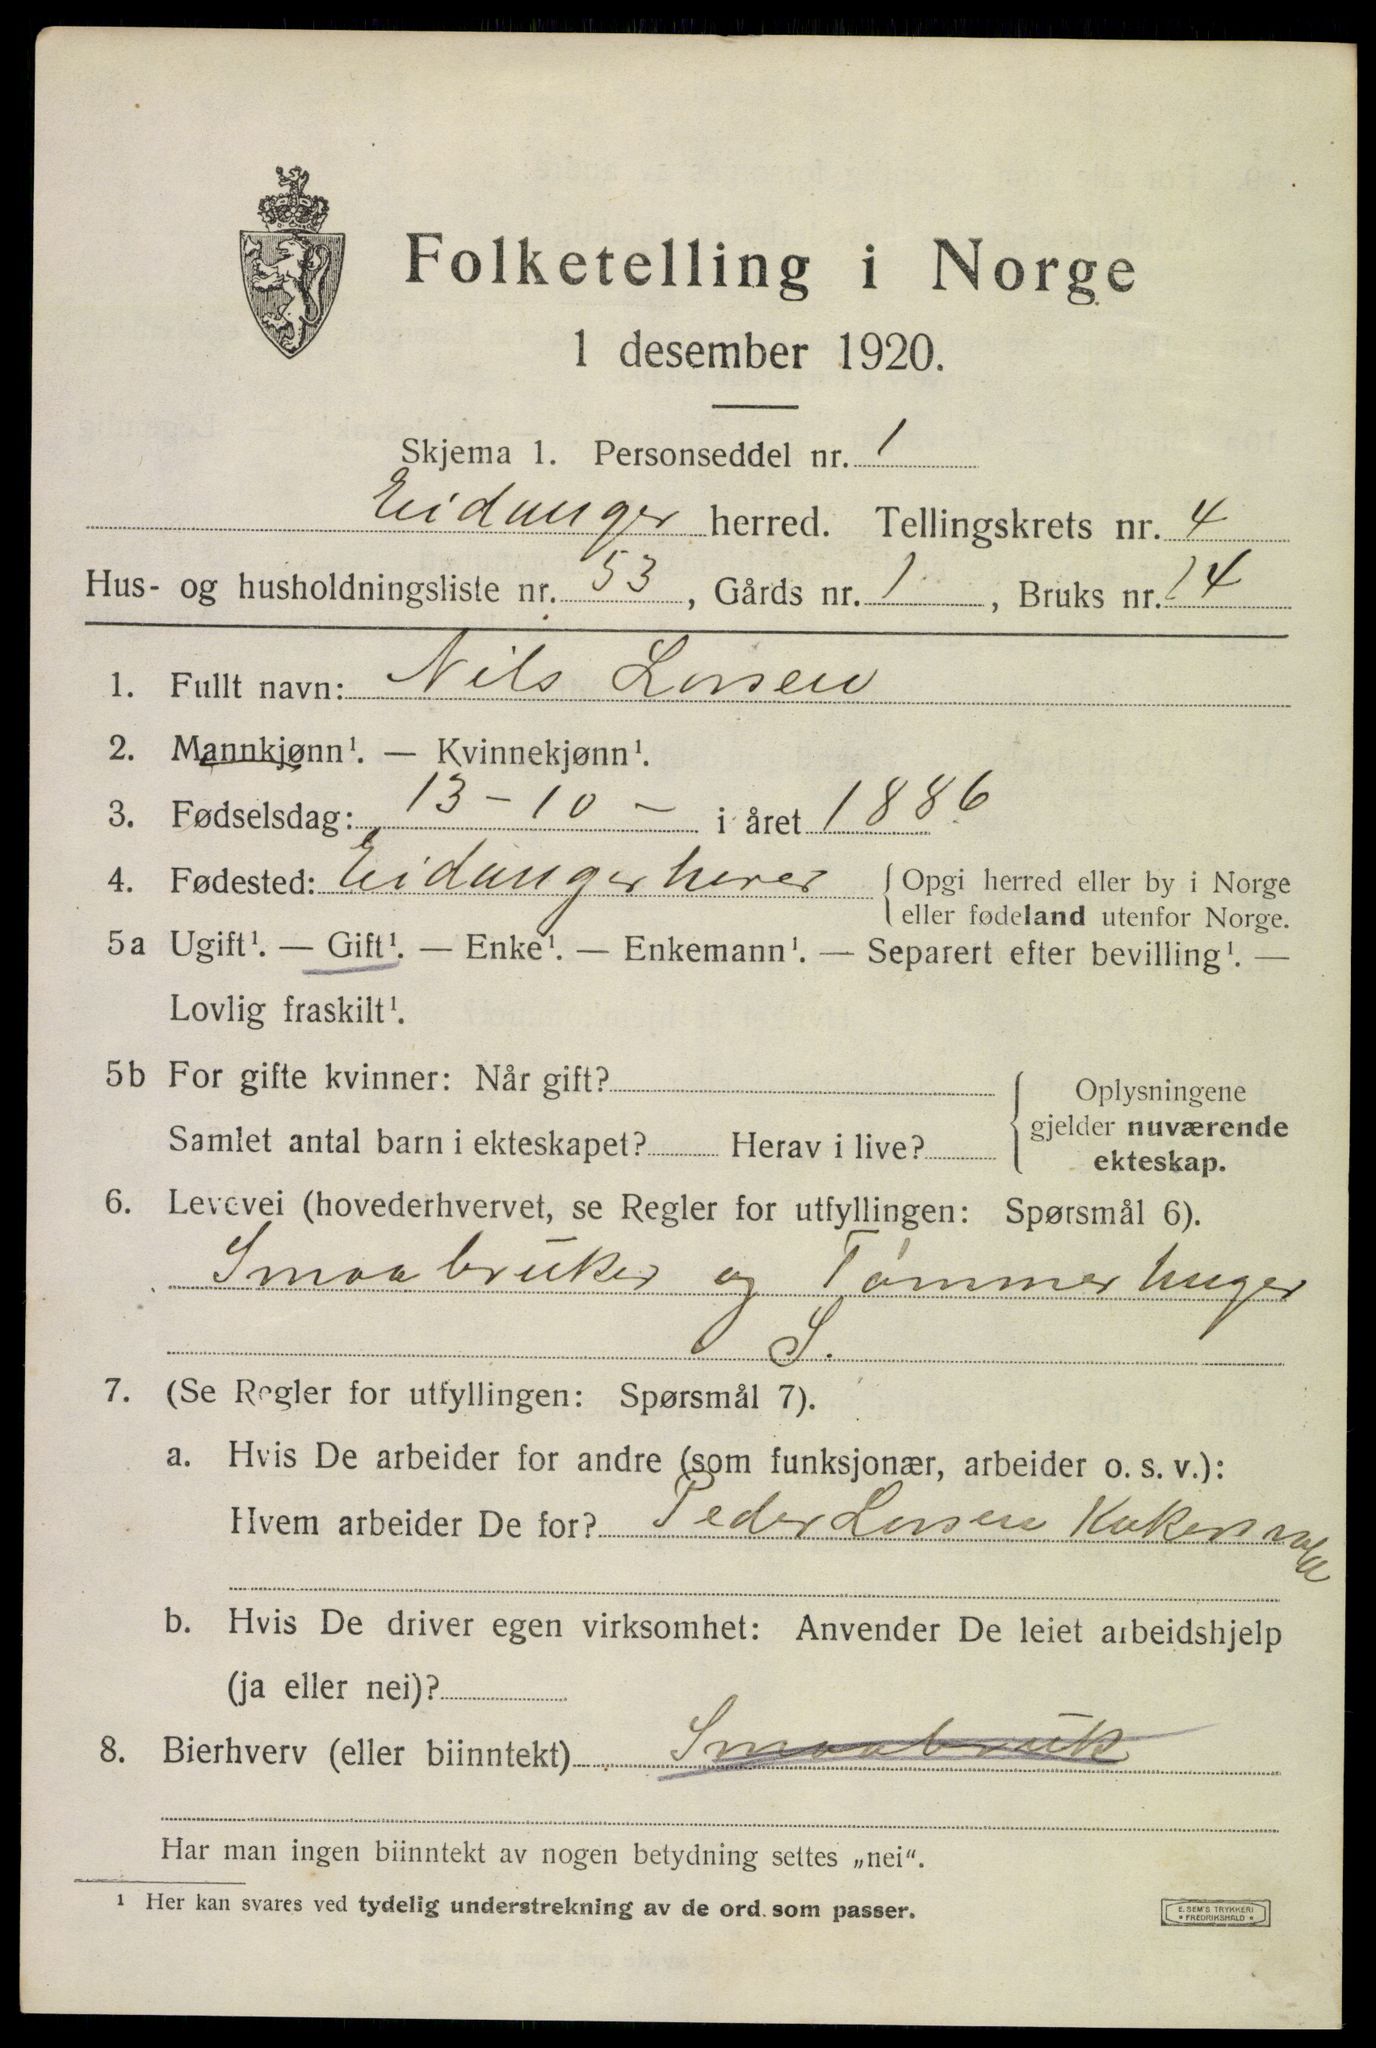 Folketelling i Norge
1 desember 1920.
Skjema 1. Personseddel nr. 1
Eidanger herred. Tellingskrets nr. 4
Hus- og husholdningsliste nr. 53, Gårds nr. 1, Bruks nr. 14
1. Fullt navn: Nils Larsen
2. Mannkjønn¹. — Kvinnekjønn¹.
3. Fødselsdag: 13-10- i året 1886
4. Fødested: Eidanger herer { Opgi herred eller by i Norge
eller fødeland utenfor Norge.
5a Ugift¹. — Gift¹. — Enke¹. — Enkemann¹. — Separert efter bevilling¹. —
Lovlig fraskilt¹.
5b For gifte kvinner: Når gift? { Oplysningene
gjelder nuværende
Samlet antal barn i ekteskapet? Herav i live?
ekteskap.
6. Levevei (hovederhvervet, se Regler for utfyllingen: Spørsmål 6).
Smaabruker og Tømmerhuger
S.
7. (Se Regler for utfyllingen: Spørsmål 7).
a. Hvis De arbeider for andre (som funksjonær, arbeider o. s. v.):
Hvem arbeider De for? Peder Larsen
b. Hvis De driver egen virksomhet: Anvender De leiet arbeidshjelp
(ja eller nei)?
8. Bierhverv (eller biinntekt) Smaabruk
Har man ingen biinntekt av nogen betydning settes „nei“.
¹ Her kan svares ved tydelig understrekning av de ord som passer.
E. SEM'S TRYKKERI
* FREDRIKSHALD *